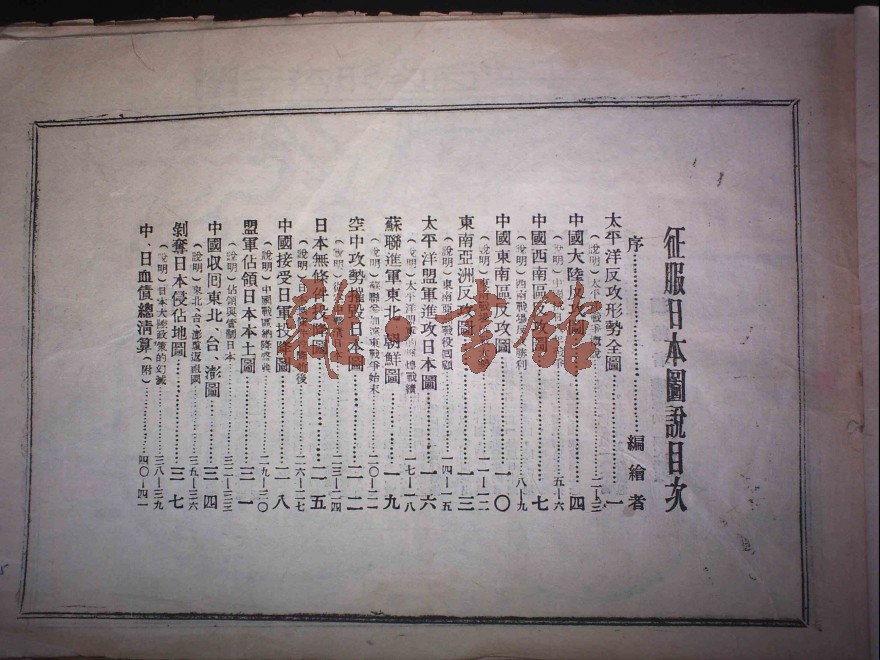 征服日本圖說目次
序……編繪者
太平洋反攻形勢全圖……一
（說明）太平洋戰爭概說……二—三
中國大陸反攻圖……四
（說明）……五—六
中國西南區反攻圖……七
（說明）西南戰場反 勝利……八—九
中國東南區反攻圖……一〇
（說明）……一一—一二
東南亞洲反攻圖……一三
（說明）東南亞 戰役回顧……一四—一五
太平洋盟軍進攻日本圖……一六
（說明）太平洋盟軍的 煌戰績……一七—一八
蘇聯進軍東北、朝鮮圖……一九
（說明）蘇聯參加遠東戰爭始末……二〇—二一
空中攻勢摧毀日本圖……二二
（說明） 日本……二三—二四
日本無條件投降圖……二五
（說明）日 後……二六—二七
中國接受日軍投降圖……二八
（說明）中國戰區納降盛典……二九—三〇
盟軍佔領日本本土圖……三一
（說明）佔領與管制日本……三二—三三
中國收囘東北、台、澎圖……三四
（說明）東北、台、澎重返祖國……三五—三六
剝奪日本侵佔地圖……三七
（說明）日本大陸政策的幻滅……三八—三九
中、日血債總清算（附）……四〇—四一
雜·書館